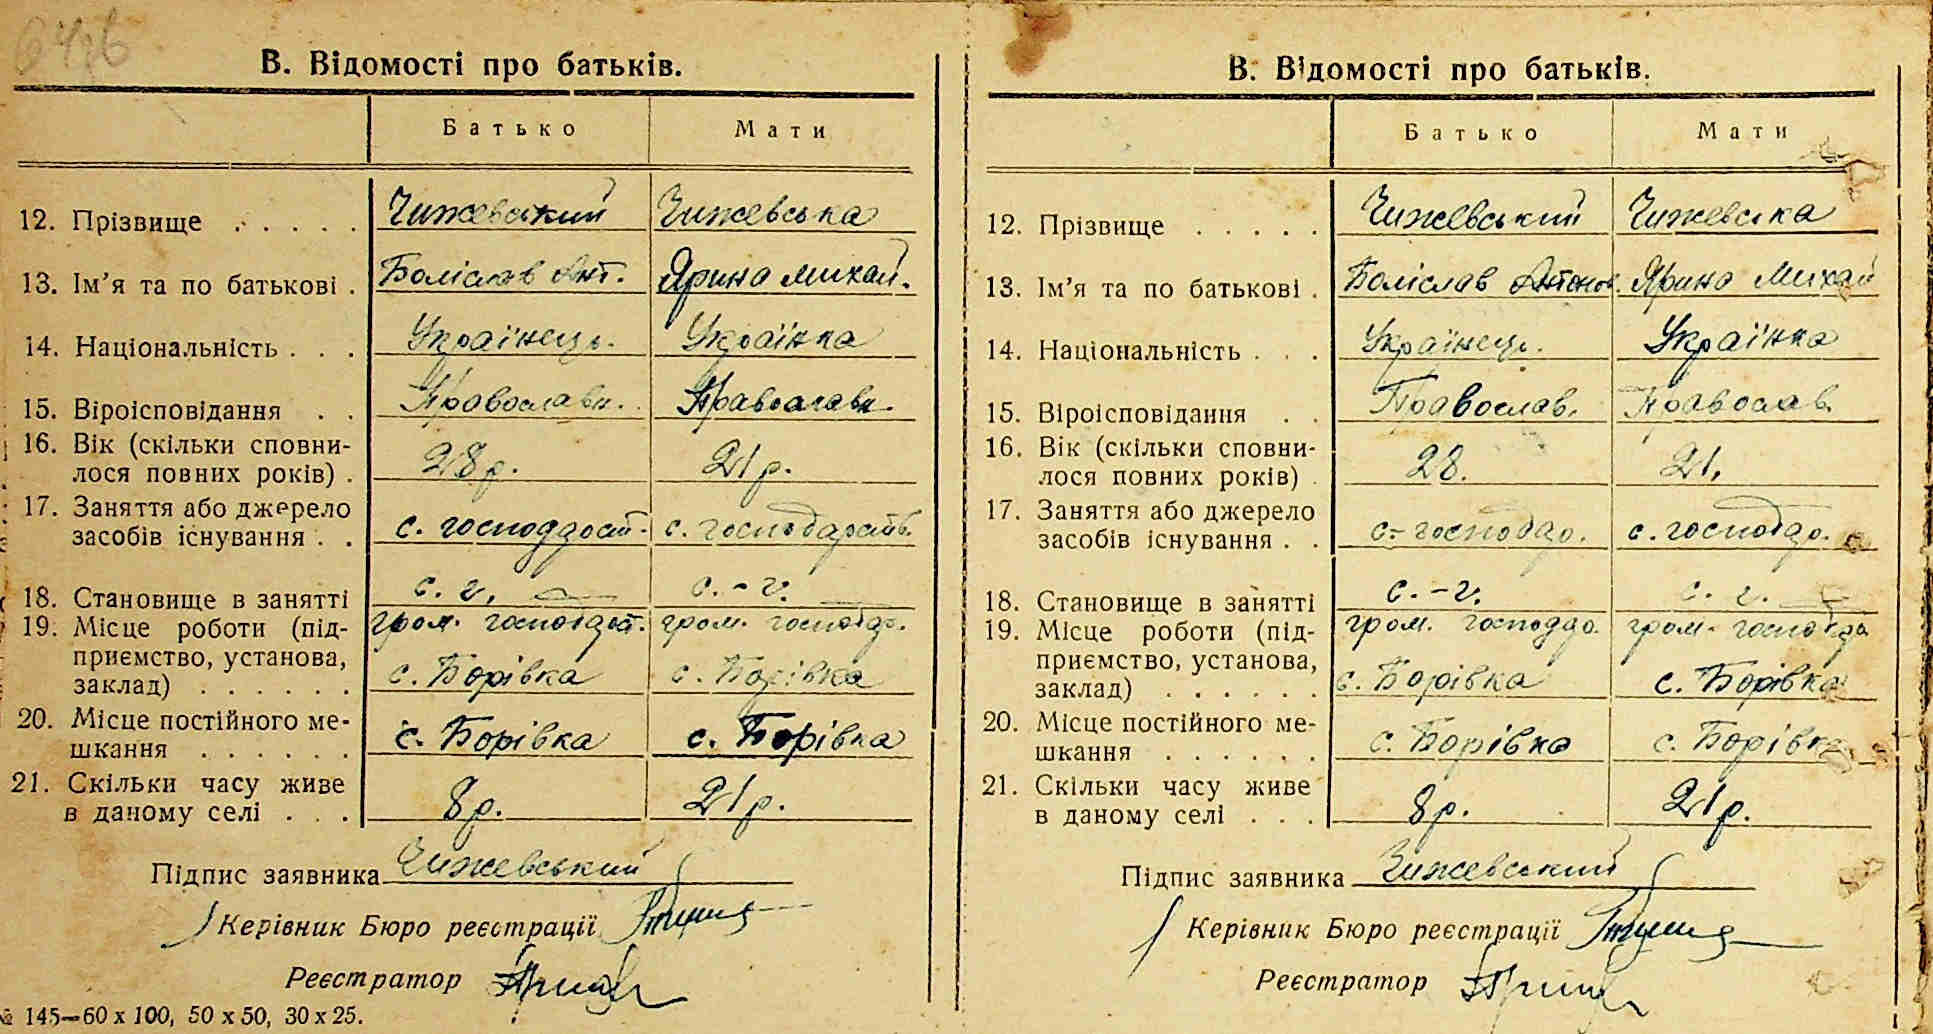 В. Відомості про батьків.
Батько Мати
12. Прізвище . . . . . Чижевський Чижевська
13. Ім'я та по батькові . Боліслав Ант. Ярина Михай.
14. Національність . . . Українець. Українка
15. Віроісповідання . . Православн. Православн.
16. Вік (скільки сповни-
лося повних років) . 28 р. 21 р.
17. Заняття або джерело
засобів існування . . с. господдост. с. господарств.
18. Становище в занятті с. г. с. - г.
19. Місце роботи (під- гром. господост. гром. господо.
приємство, установа, с. Борівка с. Борівка
заклад) . . . . . .
20. Місце постійного ме-
шкання . . . . . . с. Борівка с. Борівка
21. Скільки часу живе
в даному селі . . . 8 р. 21 р.
Підпис заявника Чижевський
Керівник Бюро реєстрації
Реєстратор
№ 145—60 x 100, 50 x 50, 30 x 25.
В. Відомості про батьків.
Батько Мати
12. Прізвище . . . . . Чижевський Чижевська
13. Ім'я та по батькові . Боліслав Антонов. Ярина Михай
14. Національність . . . Українець. Українка
15. Віроісповідання . . Православ. Православ.
16. Вік (скільки сповни-
лося повних років) . 28. 21.
17. Заняття або джерело
засобів існування . . с.-господдо. с. господдо.
18. Становище в занятті с. - г. с. г.
19. Місце роботи (під- гром. господдо. гром. господдо
приємство, установа, с. Борівка с. Борівка
заклад) . . . . . .
20. Місце постійного ме-
шкання . . . . . . с. Борівка с. Борівка
21. Скільки часу живе
в даному селі . . . 8 р. 21 р.
Підпис заявника Чижевський
Керівник Бюро реєстрації
Реєстратор